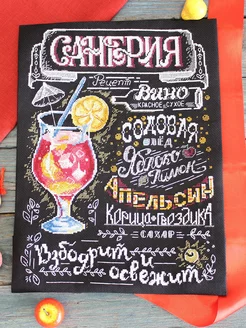 САНГРИЯ
Рецепт
Вино
КРАСНОЕ СУХОЕ
СОДОВАЯ
ЛЁД
Яблоко
Лимон
АПЕЛЬСИН
Корица•Гвоздика
САХАР
Взбодрит и
освежит